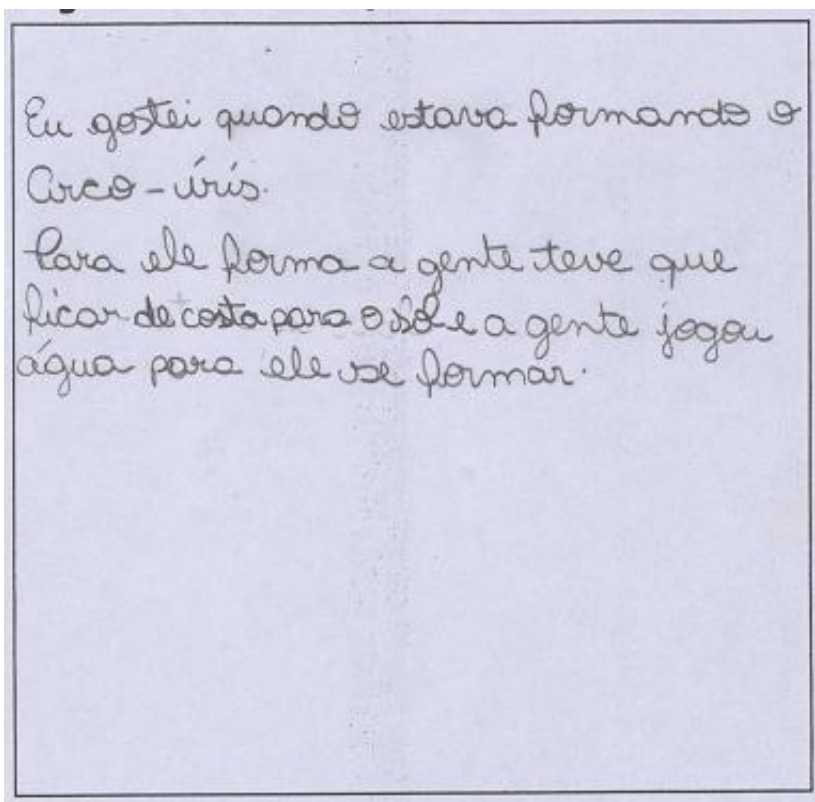 Eu gostei quando estava formando o
Arco-íris.
Para ele forma a gente teve que
ficar de costa para o sol e a gente jogou
água para ele se formar.